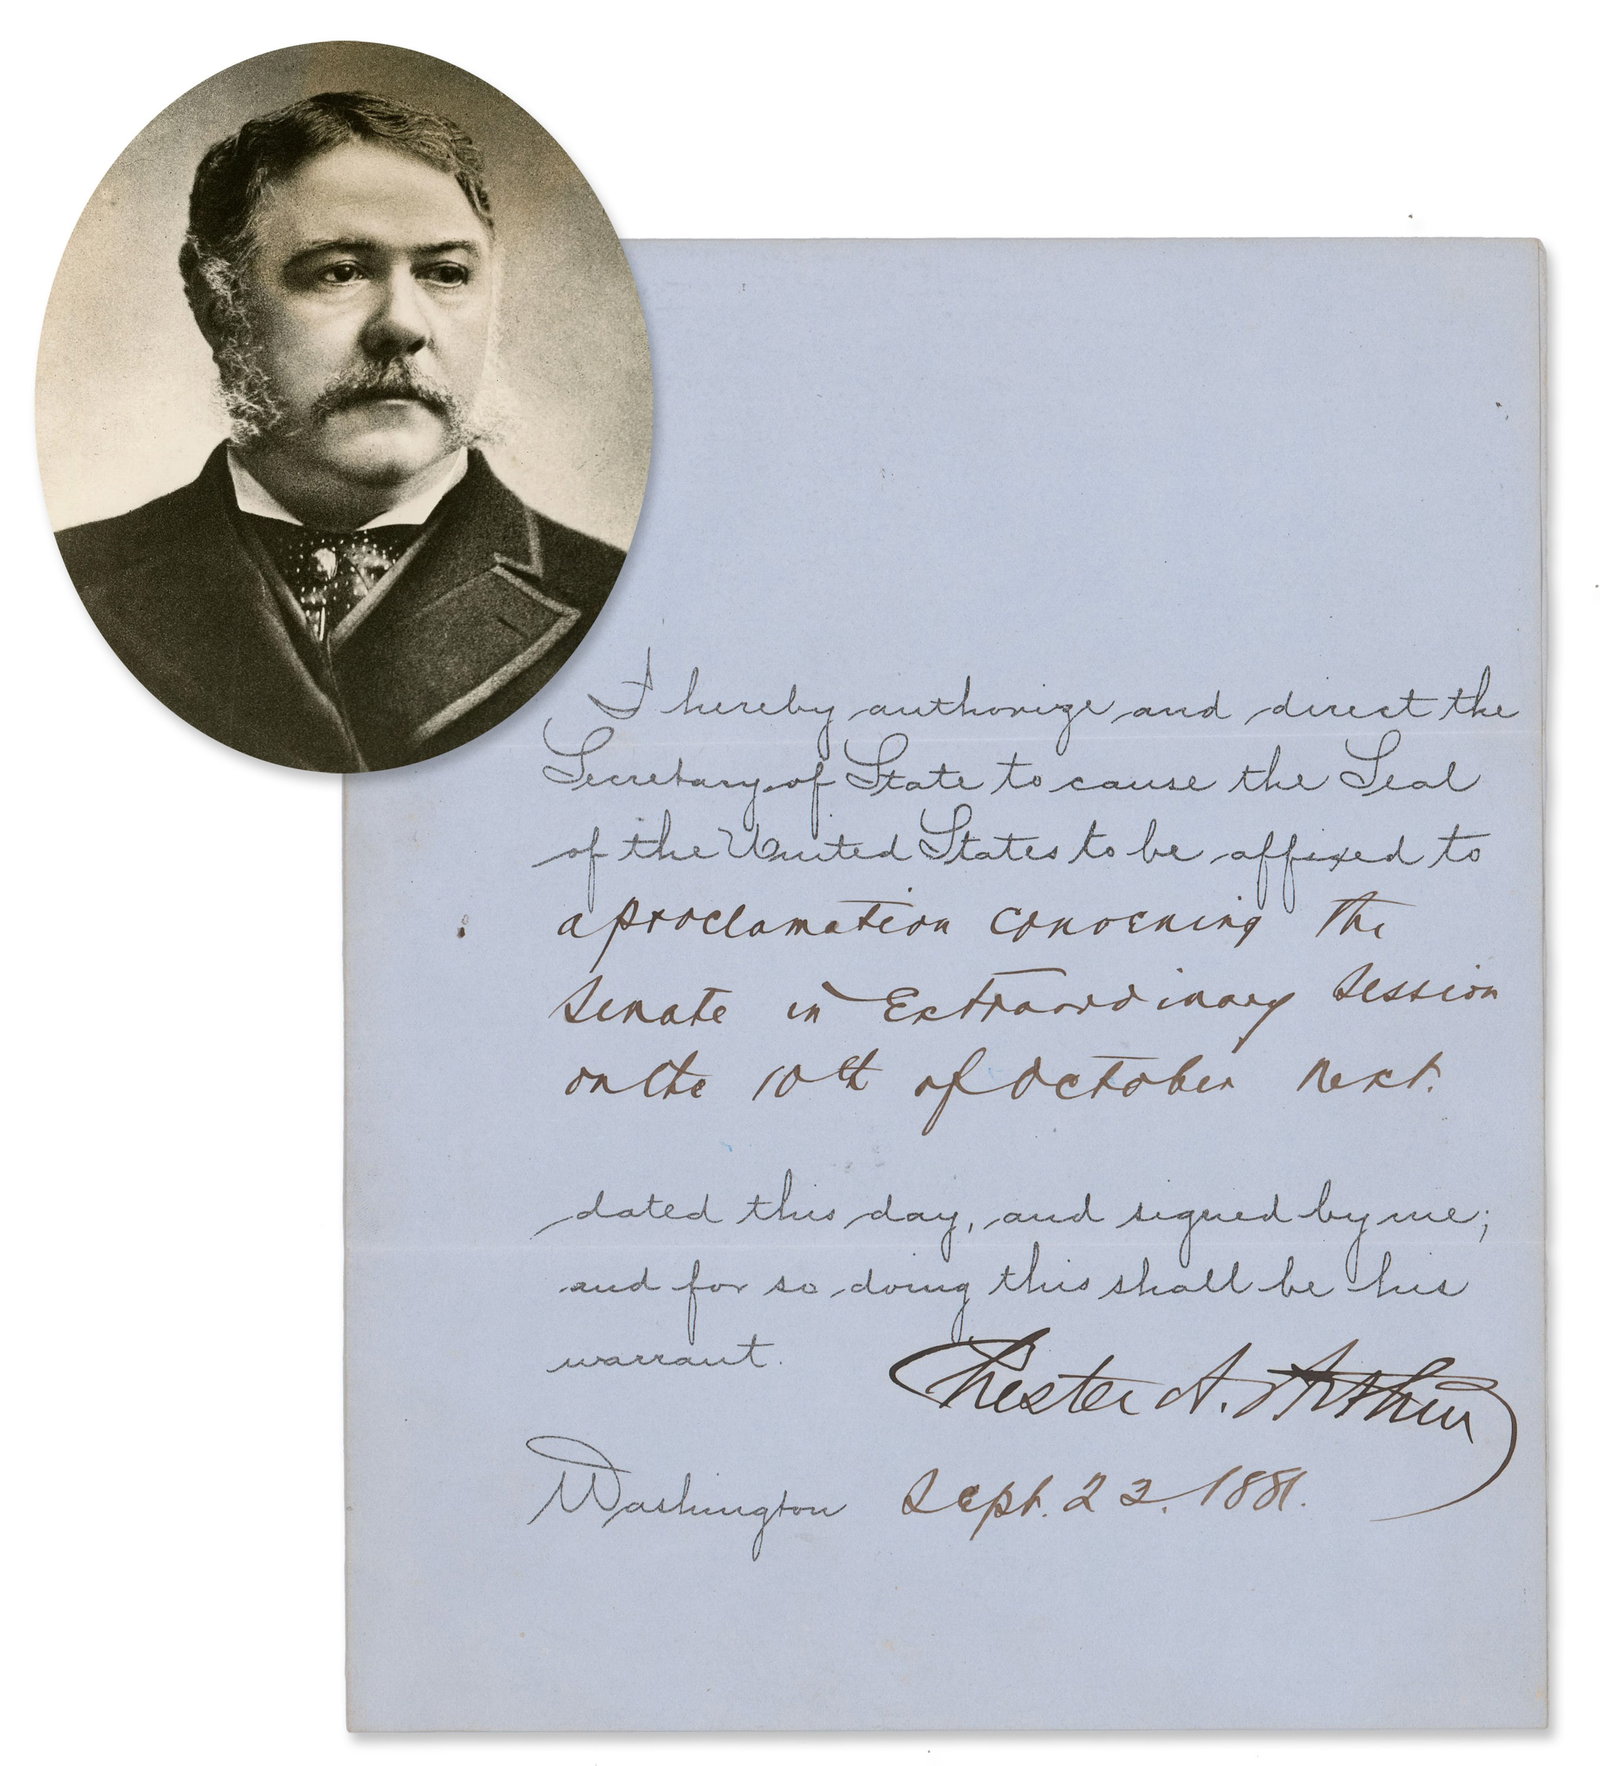 I hereby authorize and direct the
Secretary of State to cause the Seal
of the United States to be affixed to
a proclamation concerning the
Senate in Extraordinary Session
on the 10th of October next.
dated this day, and signed by me;
and for so doing this shall be his
warrant.
Chester A. Arthur
Washington Sept. 23. 1881.